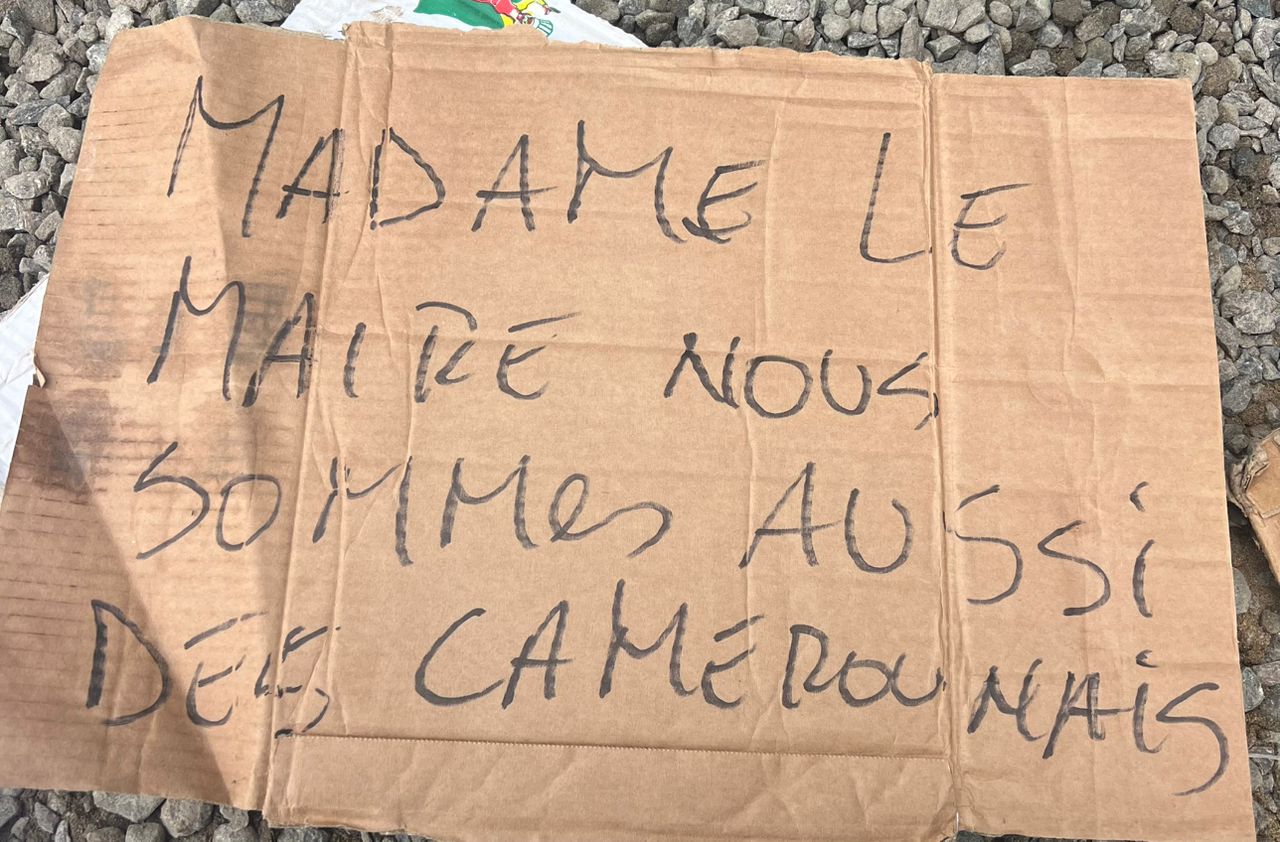 MADAME LE
MAIRE NOUS
SOMMes AUSSi
DES CAMEROUNAiS